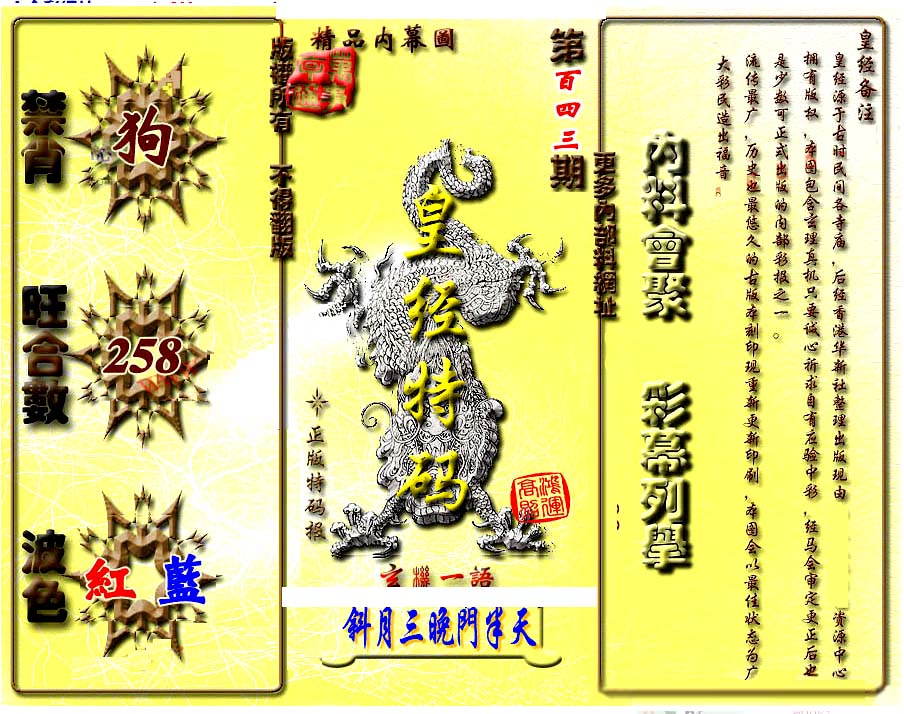 精品内幕圖
版權所有 不得翻版
第百四三期
更多内部料網址
禁肖
狗
旺合數
258
波色
紅 藍
皇经特码
正版特码报
鴻運高照
玄機一語
斜月三晚門半天
内料會聚 彩幕列舉
皇经备注
皇经源于古时民间各寺庙,后经香港华新社整理出版现由 资源中心
拥有版权,本图包含玄理真机只要诚心祈求自有应验中彩,经马会审定更正后也
是少数可正式出版的内部彩报之一。
流传最广,历史也最悠久的古版本刻印现重新更新印刷,本图会以最佳状态为广
大彩民造出福音